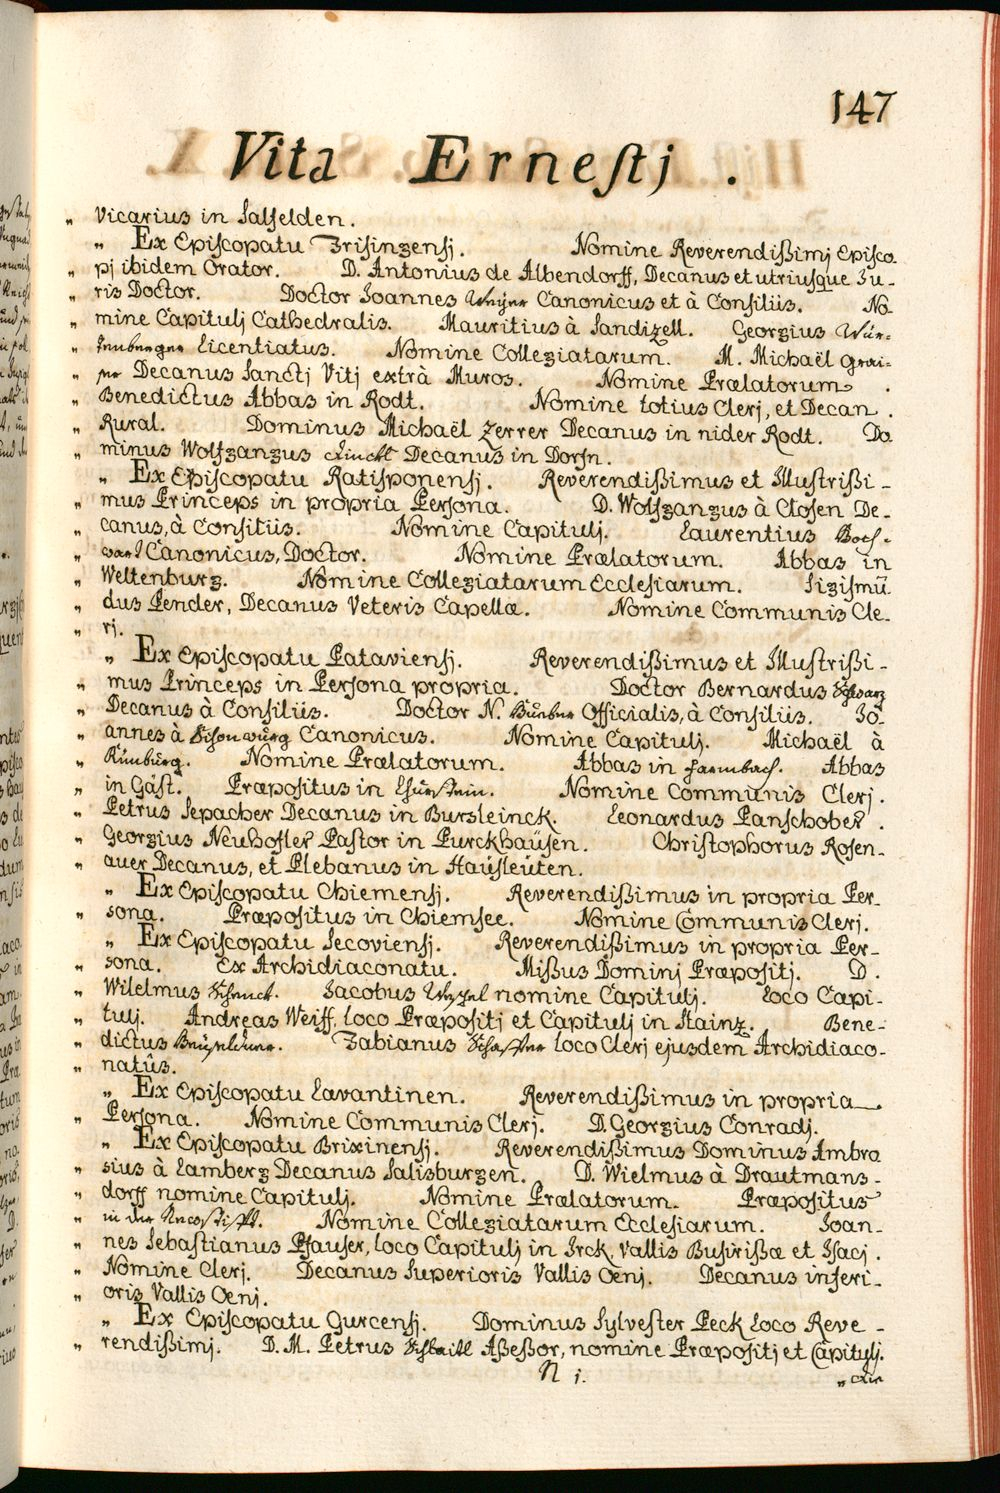 147
Vita Ernestj.
„ Vicarius in Salfelden.
„ Ex Episcopatu Frisingensj. Nomine Reverendißimj Episco
„ pj ibidem Orator. D. Antonius de Albendorff, Decanus et utriusque Ju-
„ ris Doctor. Doctor Joannes Weyer Canonicus et à Consiliis. No
„ mine Capitulj Cathedralis. Mauritius à Sandizell. Georgius Wür-
„ tenberger Licentiatus. Nomine Collegiatarum. M. Michaël Grai-
„ per Decanus Sanctj Vitj extrà Muros. Nomine Prælatorum.
„ Benedictus Abbas in Rodt. Nomine totius Clerj, et Decan.
„ Rural. Dominus Michaël Zerrer Decanus in nider Rodt. Do
„ minus Wolfgangus Decanus in Dorfn.
„ Ex Episcopatu Ratisponensj. Reverendißimus et Illustrißi-
„ mus Princeps in propria Persona. D. Wolfgangus à Closen De-
„ canus, à Consiliis. Nomine Capitulj. Laurentius Hoch-
„ wart Canonicus, Doctor. Nomine Prælatorum. Abbas in
„ Weltenburg. Nomine Collegiatarum Ecclesiarum. Sigismū
„ dus Pender, Decanus Veteris Capellæ. Nomine Communis Cle-
„ rj.
„ Ex Episcopatu Pataviensj. Reverendißimus et Illustrißi-
„ mus Princeps in Persona propria. Doctor Bernardus Schwarz
„ Decanus à Consiliis. Doctor N. Officialis, à Consiliis. Jo
„ annes à Canonicus. Nomine Capitulj. Michaël à
„ Künburg. Nomine Prælatorum. Abbas in Farmbach. Abbas
„ in Gäst. Præpositus in Nomine Communis Clerj.
„ Petrus Sepacher Decanus in Bursleinck. Leonardus Panschober.
„ Georgius Neuhofler Pastor in Purckhaüsen. Christophorus Rosen-
„ auer Decanus, et Plebanus in Haüsleüten.
„ Ex Episcopatu Chiemensj. Reverendißimus in propria Per-
„ sona. Præpositus in Chiemsee. Nomine Communis Clerj.
„ Ex Episcopatu Secoviensj. Reverendißimus in propria Per-
„ sona. Ex Archidiaconatu. Mißus Dominj Præpositj. D.
„ Wilelmus Schenck. Jacobus Wezel nomine Capitulj. Loco Capi-
„ tulj. Andreas Weiff, loco Præpositj et Capitulj in Stainz. Bene-
„ dictus Fabianus Schaffer loco Clerj ejusdem Archidiaco-
„ natûs.
„ Ex Episcopatu Lavantinen. Reverendißimus in propria
„ Persona. Nomine Communis Clerj. D. Georgius Conradj.
„ Ex Episcopatu Brixinensj. Reverendißimus Dominus Ambro
„ sius à Lamberg Decanus Salisburgen. D. Wielmus à Drautmans-
„ dorff nomine Capitulj. Nomine Prælatorum. Præpositus
„ in der Nomine Collegiatarum Ecclesiarum. Joan-
„ nes Sebastianus Pfauser, loco Capitulj in Irck, Vallis Busirißæ et Isacj.
„ Nomine Clerj. Decanus Superioris Vallis Oenj. Decanus inferi-
„ oris Vallis Oenj.
„ Ex Episcopatu Gurcensj. Dominus Sylvester Peck Loco Reve-
„ rendißimj. D. M. Petrus Aßeßor, nomine Præpositj et Capitulj.
N j.